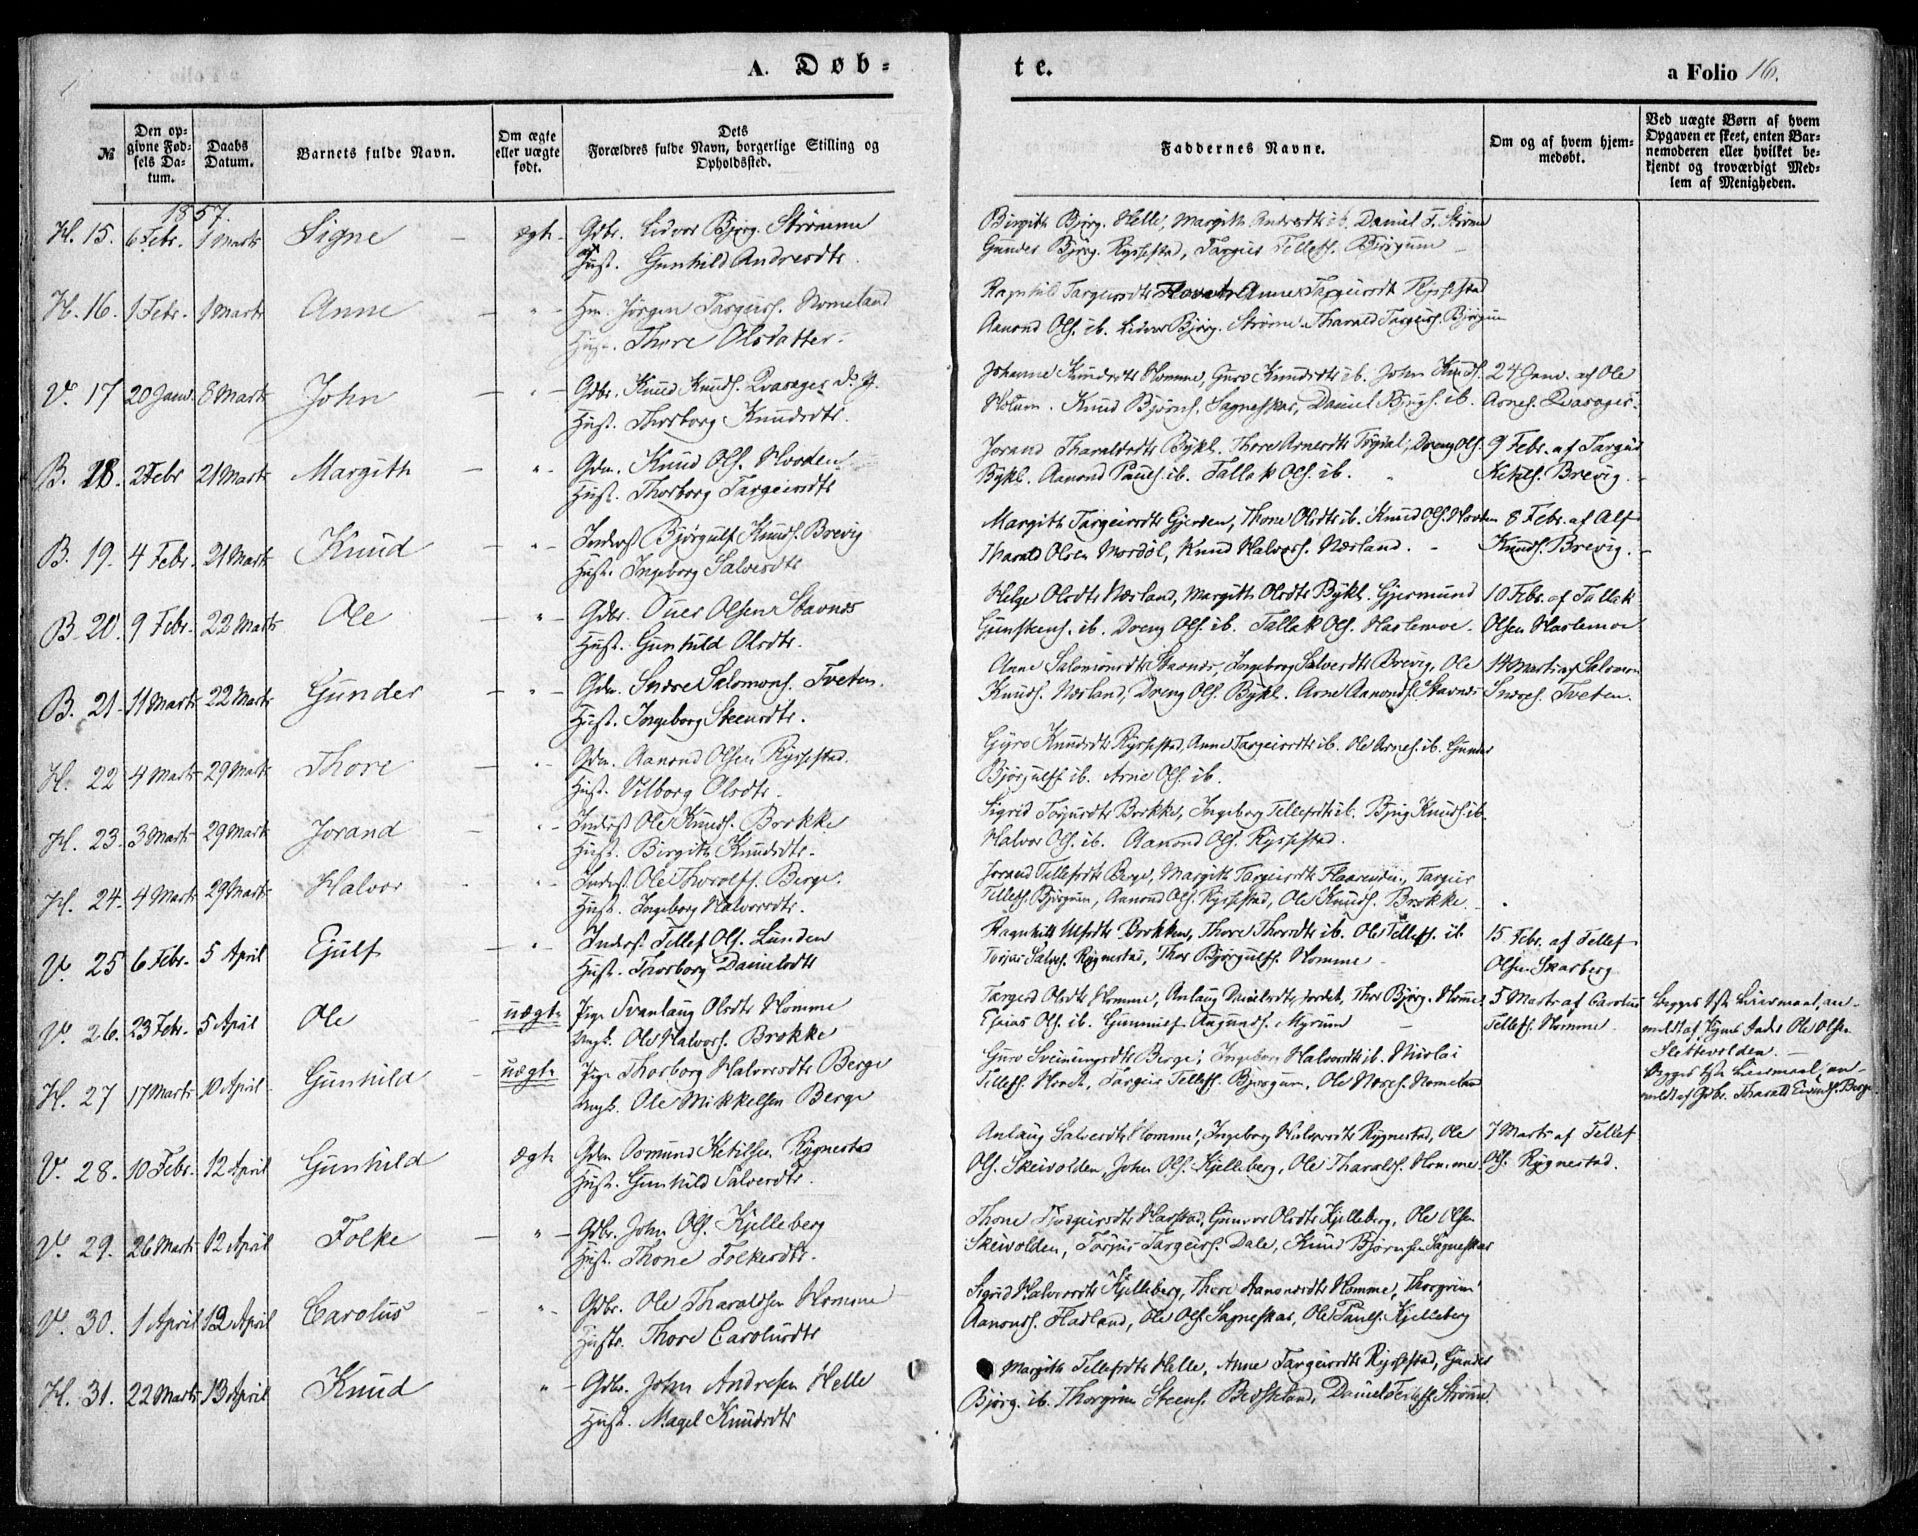 A. Døb= te. a Folio 16.
№ Den opgivne Fødsels Datum. Daabs Datum. Barnets fulde Navn. Om ægte eller uægte født. Dets Forældres fulde Navn, borgerlige Stilling og Opholdssted. Faddernes Navne. Om og af hvem hjemmedøbt. Ved uægte Børn af hvem Opgaven er skeet, enten Barnemoderen eller hvilket bekjendt og troværdigt Medlem af Menigheden.
1857.
H. 15. 6 Febr. 1 Marts Signe ægte Gdbr. Lidvor Bjørg. Strømme Birgith Bjørg. Helle, Margith Andresdtr ib. Daniel T. Strøme
og Hust. Gunhild Andresdtr. Gunder Bjørg. Rysstad, Targeir Tellefs. Bjørgum
H. 16. 1 Febr. 1 Marts Anne " Hm. Jørgen Targeirs. Nomeland Ragnhild Targeirsdtr Anne Targeirsdtr Rysstad
Hust. Thore Olsdatter. Aanond Ols. ib. Lidvor Bjørg. Strøme. Tharald Targeirs. Bjørgum
V. 17 20 Janv. 8 Marts John " Gdbr. Knud Knuds. Qvasager Johanne Knudsdtr Homme, Guro Knudsdtr ib. John Knuds. 24 Janv. af Ole
Hust. Thorborg Knudsdtr. Knud Bjørns. Sagneskar, Daniel Bjugs. ib. Arnes. Qvasager.
B. 18. 2 Febr 21 Marts Margith " Gdm. Knud Ols. Hovden Jorand Tharaldsdtr Bykl. Thore Arnesdtr Dreng Ols. 9 Febr. af Targeir
Hust. Thorborg Targeirsdtr Bykl. Aanond Pauls. ib. Tallak Ols. ib. Ketils. Brevig.
B. 19. 4 Febr. 21 Marts Knud " Inderst Bjørgulf Knuds. Brevig Margith Targeirsdtr Gjerden, Thone Olsdtr ib. Knud Ols. Hovden 8 Febr. af Alf
Hust. Ingeborg Salvesdtr Tharald Olsen Mordøl, Knud Halvors. Nærland. Knuds. Brevig.
B. 20. 9 Febr. 22 Marts Ole " Gdbr. Ouer Olsen Stavnes Helge Olsdtr Nærland, Margith Olsdtr Bykl. Gjermund 10 Febr. af Tallak
Hust. Gunhild Olsdtr. Gunstens. ib. Dreng Ols. ib. Tallak Ols. Harlemoe. Olsen Harlemoe
B. 21. 11 Marts 22 Marts Gunder " Gdm. Snore Salomons. Tveten. Anne Salomonsdtr Stavnes, Ingeborg Salvesdtr Brevig, Ole 14 Marts af Salomon
Hust. Ingeborg Steensdtr. Knuds. Nærland, Dreng Ols. Bykl. Arne Aanonds. Stavnes Snores. Tveten.
H. 22 4 Marts 29 Marts Thore " Gdm. Aanond Olsen Rysstad. Gyro Knudsdtr Rysstad, Anne Targeirsdtr ib. Ole Arnes. ib. Gunder
Hust. Vilborg Olsdtr. Bjørgulfs ib. Arne Ols. ib.
H. 23. 3 Marts 29 Marts Jorand " Inderst Ole Knuds. Brokke Sigrid Torjusdtr Brokke, Ingeborg Tellefsdtr ib. Bjug Knuds. ib.
Hust. Birgith Knudsdtr. Halvor Ols. ib. Aanond Ols. Rysstad.
H. 24. 4 Marts 29 Marts Halvor " Inderst. Ole Thorolfs. Berge. Jorand Tellefsdtr Berge, Margith Targeirsdtr Targeir
Hust. Ingeborg Halvorsdtr. Tellefs. Bjørgum, Aanond Ols. Rysstad, Ole Knuds. Brokke.
V. 25 6 Febr. 5 April Ejulf " Inderst. Tellef Ols. Lunden Ragnhild Ulfsdtr Brokken, Thore Thorsdtr ib. Ole Tellefs. ib 15 Febr. af Tellef
Hust. Thorborg Danielsdtr Torjus Salves. Rygnestad, Thor Bjørgulfs. Homme Olsen Skarberg
V. 26. 23 Febr. 5 April Ole uægte Pige Svanlaug Olsdtr Homme Targerd Olsdtr Homme, Anlaug Danielsdtr Jordet, Thor Bjørg. Homme 5 Marts af Carolus Begges 1ste Leiermaal, an-
Ungk. Ole Halvors. Brokke Esaias Ols. ib. Gunnulf Augunds. Myrum Tellefs. Homme. meldt af Ole Olsen
Slettevolden.
H. 27 17 Marts 10 April Gunhild uægte Pige Thorborg Halvorsdtr Berge Guro Sveiningsdtr Berge, Ingeborg Halvorsdtr ib. Nicolai Begges 1ste Leiermaal, an-
Ungk. Ole Mikkelsen Berge Tellefs. Targeir Tellefs. Bjørgum, Ole Nomeland meldt af Gdbr. Tharald Berge.
V. 28. 10 Febr. 12 April Gunhild ægte Gdm Osmund Ketilsen Rygnestad Anlaug Salvesdtr Homme, Ingeborg Halvorsdtr Rygnestad, Ole 7 Marts af Tellef
Hust. Gunhild Salvesdtr. Ols. Skeivolden, John Ols. Kjelleberg, Ole Tharalds. Homme Ols. Rygnestad.
V. 29. 26 Marts 12 April Folke " Gdbr. John Ols. Kjelleberg Thone Harstad, Gunvor Olsdtr Kjelleberg, Ole Olsen
Hust. Thone Folkesdtr. Skeivolden, Torjus Targeirs. Dale, Knud Bjørnsen Sagneskar
V. 30. 1 April 12 April Carolus " Gdbr. Ole Tharaldsen Homme Sigrid Halvorsdtr Kjelleberg, Thore Aanondsdtr Homme, Thorgrim
Hustr. Thore Carolusdtr Aanonds. Fladland, Ole Ols. Sagneskar, Ole Pauls. Kjelleberg
H. 31. 22 Marts 13 April Knud " Gdbr. John Andresen Helle Margith Tellefsdtr Helle, Anne Targeirsdtr Rysstad, Gunder
Hust. Magel Knudsdtr Bjørg. ib. Thorgrim Steens. Besteland, Daniel Tellefs. Strømme.